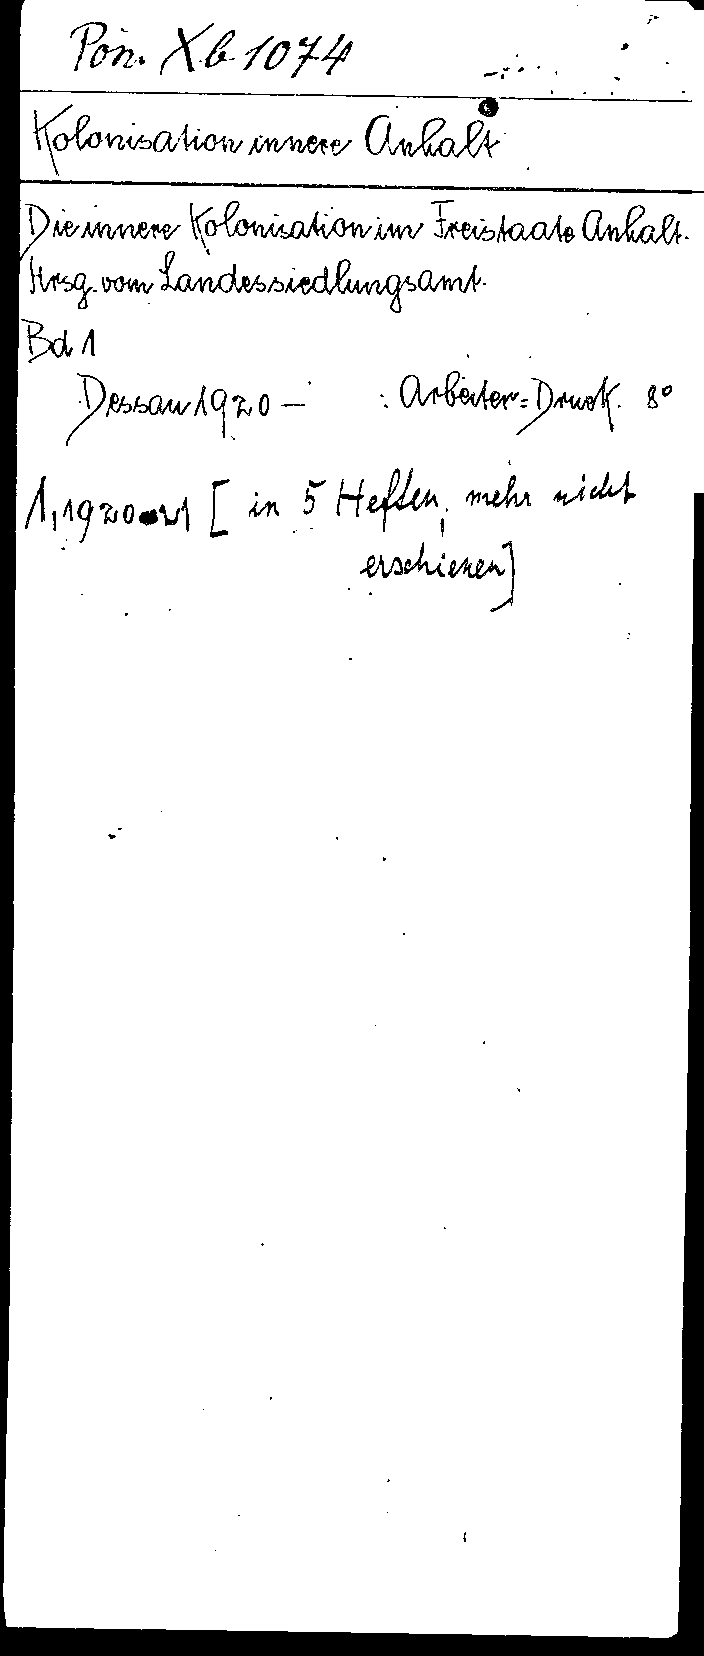 Pon. Xb 1074
Kolonisation innere Anhalt
Die innere Kolonisation im Freistaate Anhalt.
Hrsg. vom Landessiedlungsamt.
Bd 1
Dessau 1920 — : Arbeiter=Druck. 8°
1,1920-21 [in 5 Heften, mehr nicht
erschienen]